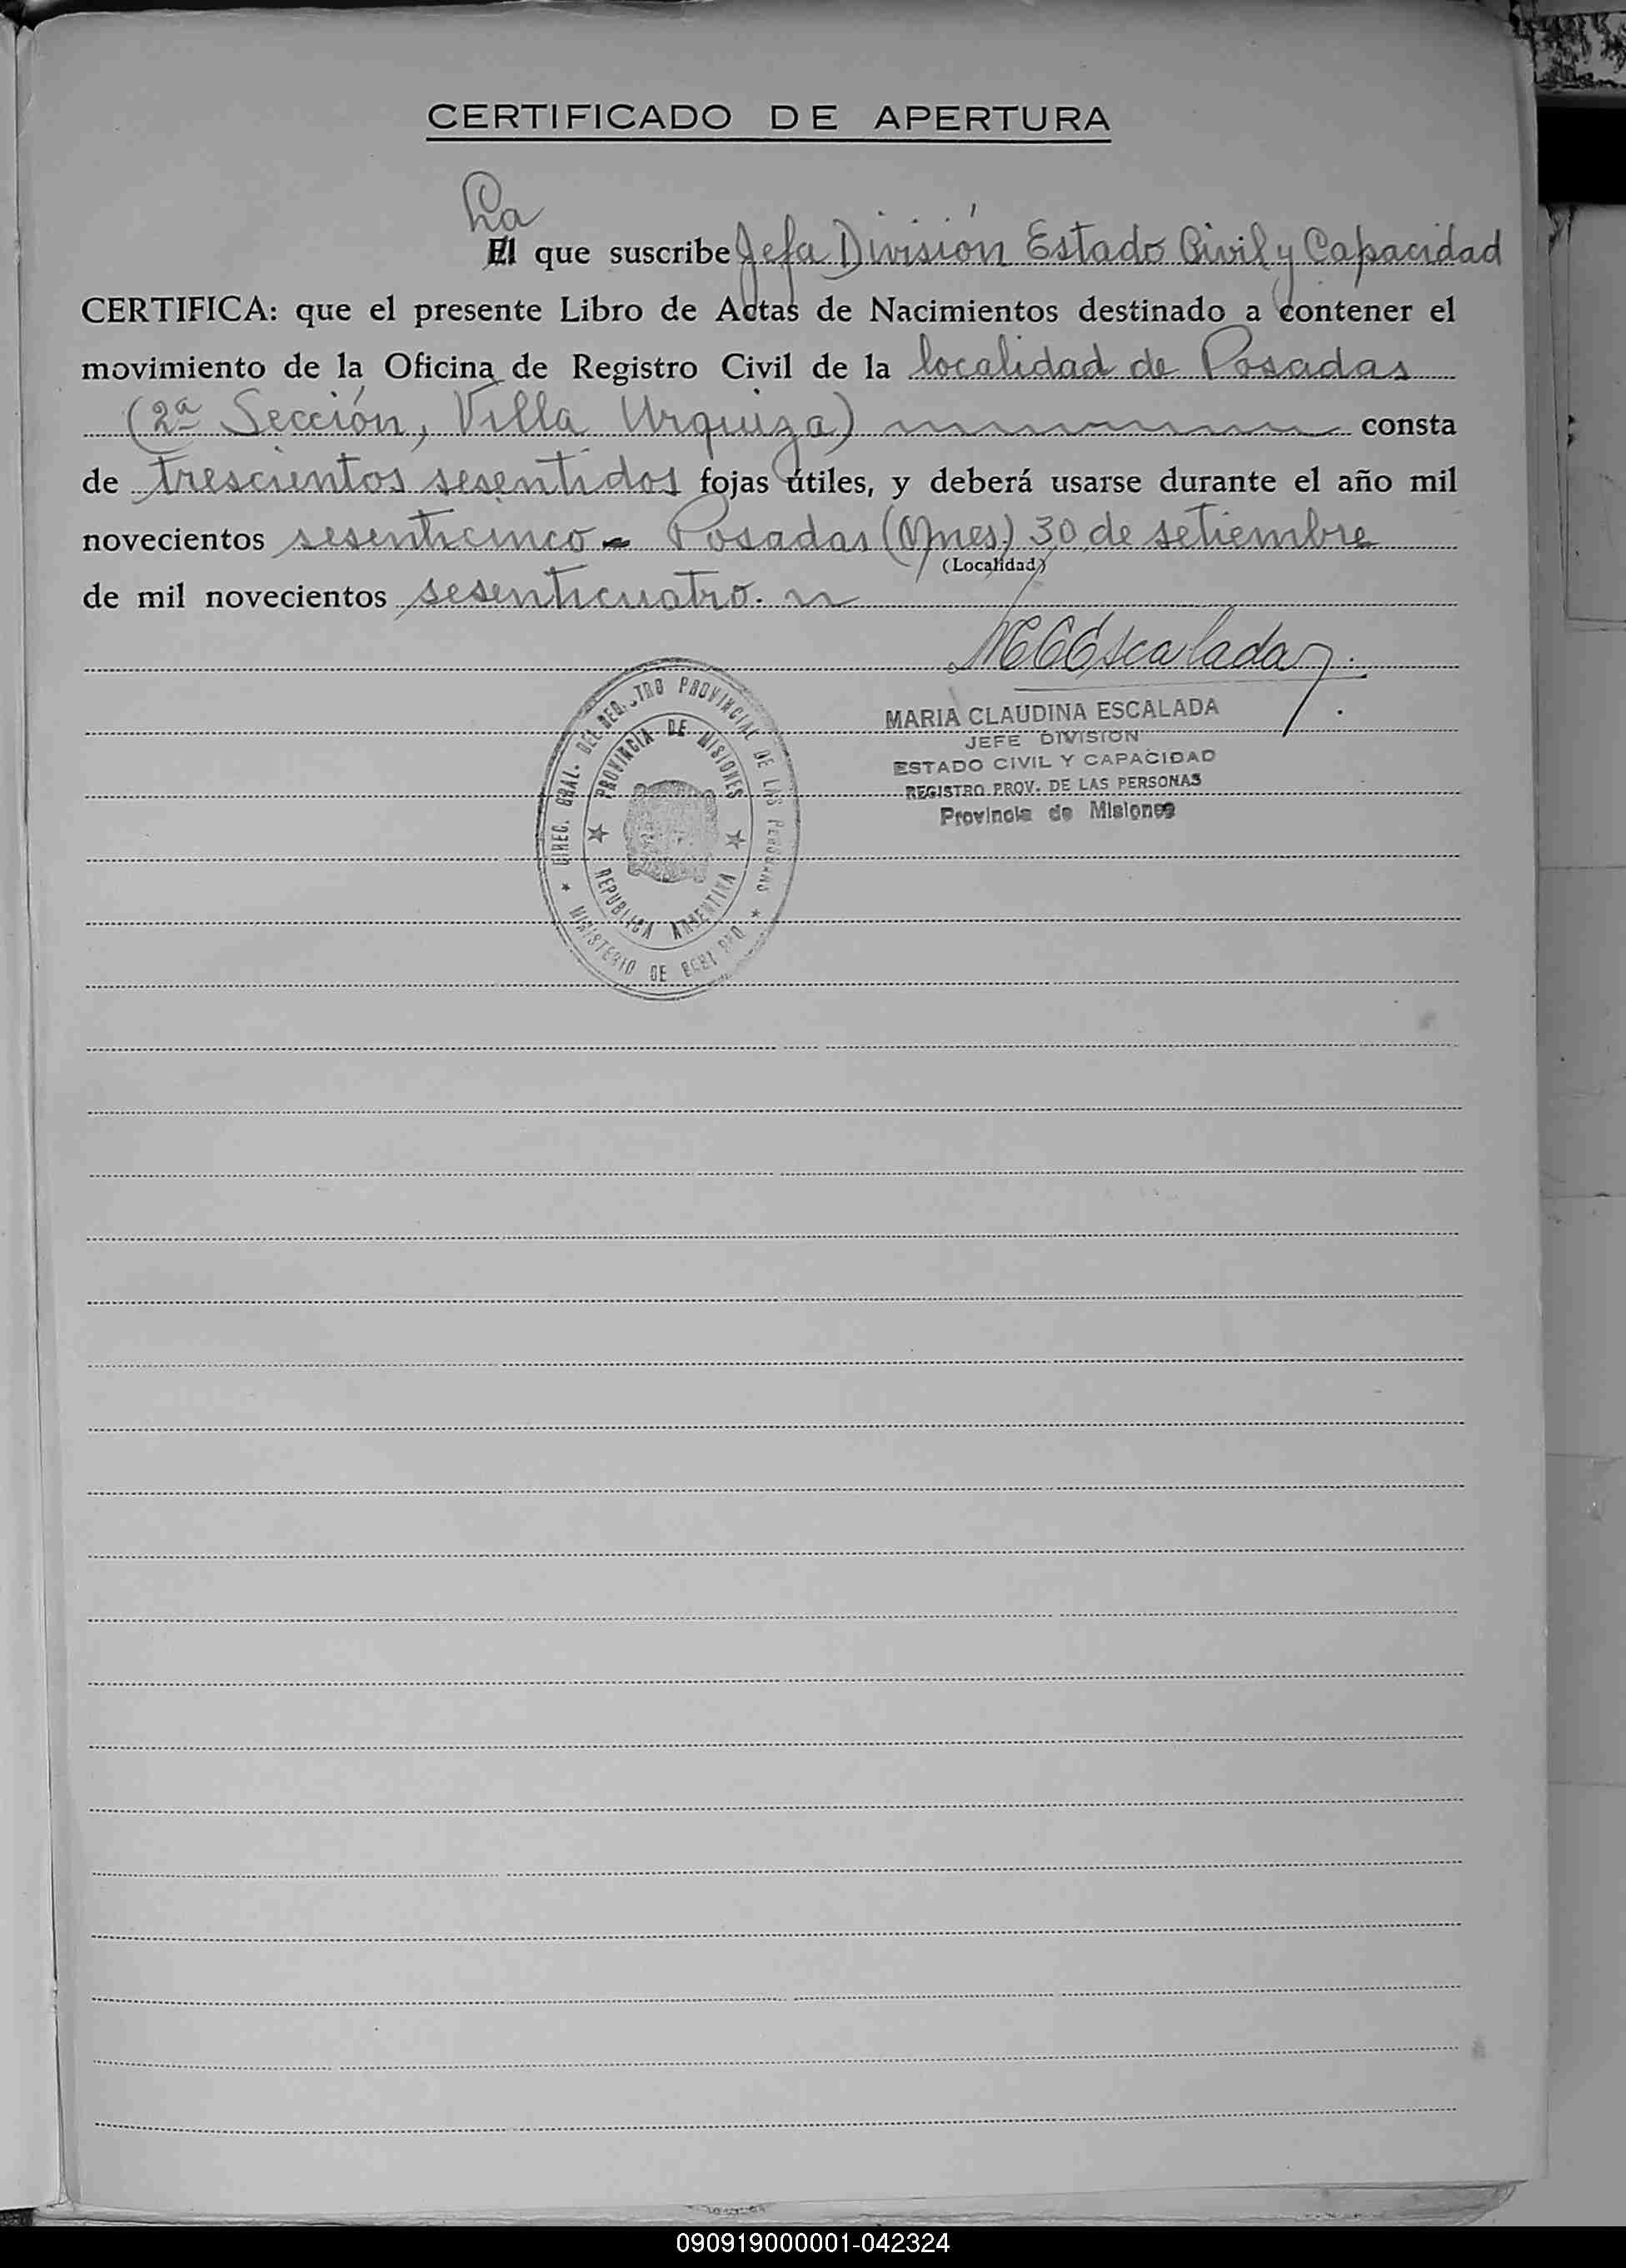 CERTIFICADO DE APERTURA
La
El que suscribe Jefa División Estado Civil y Capacidad
CERTIFICA: que el presente Libro de Actas de Nacimientos destinado a contener el
movimiento de la Oficina de Registro Civil de la localidad de Posadas
(2ª Sección, Villa Urquiza) consta
de trescientos sesentidos fojas útiles, y deberá usarse durante el año mil
novecientos sesenticinco - Posadas (Mnes.) 30 de setiembre
(Localidad)
de mil novecientos sesenticuatro.
MCEscalada
MARIA CLAUDINA ESCALADA
JEFE DIVISION
ESTADO CIVIL Y CAPACIDAD
REGISTRO PROV. DE LAS PERSONAS
Provincia de Misiones
DIREC. GRAL. DEL REGISTRO PROVINCIAL DE LAS PERSONAS
PROVINCIA DE MISIONES
REPUBLICA ARGENTINA
MINISTERIO DE
090919000001-042324